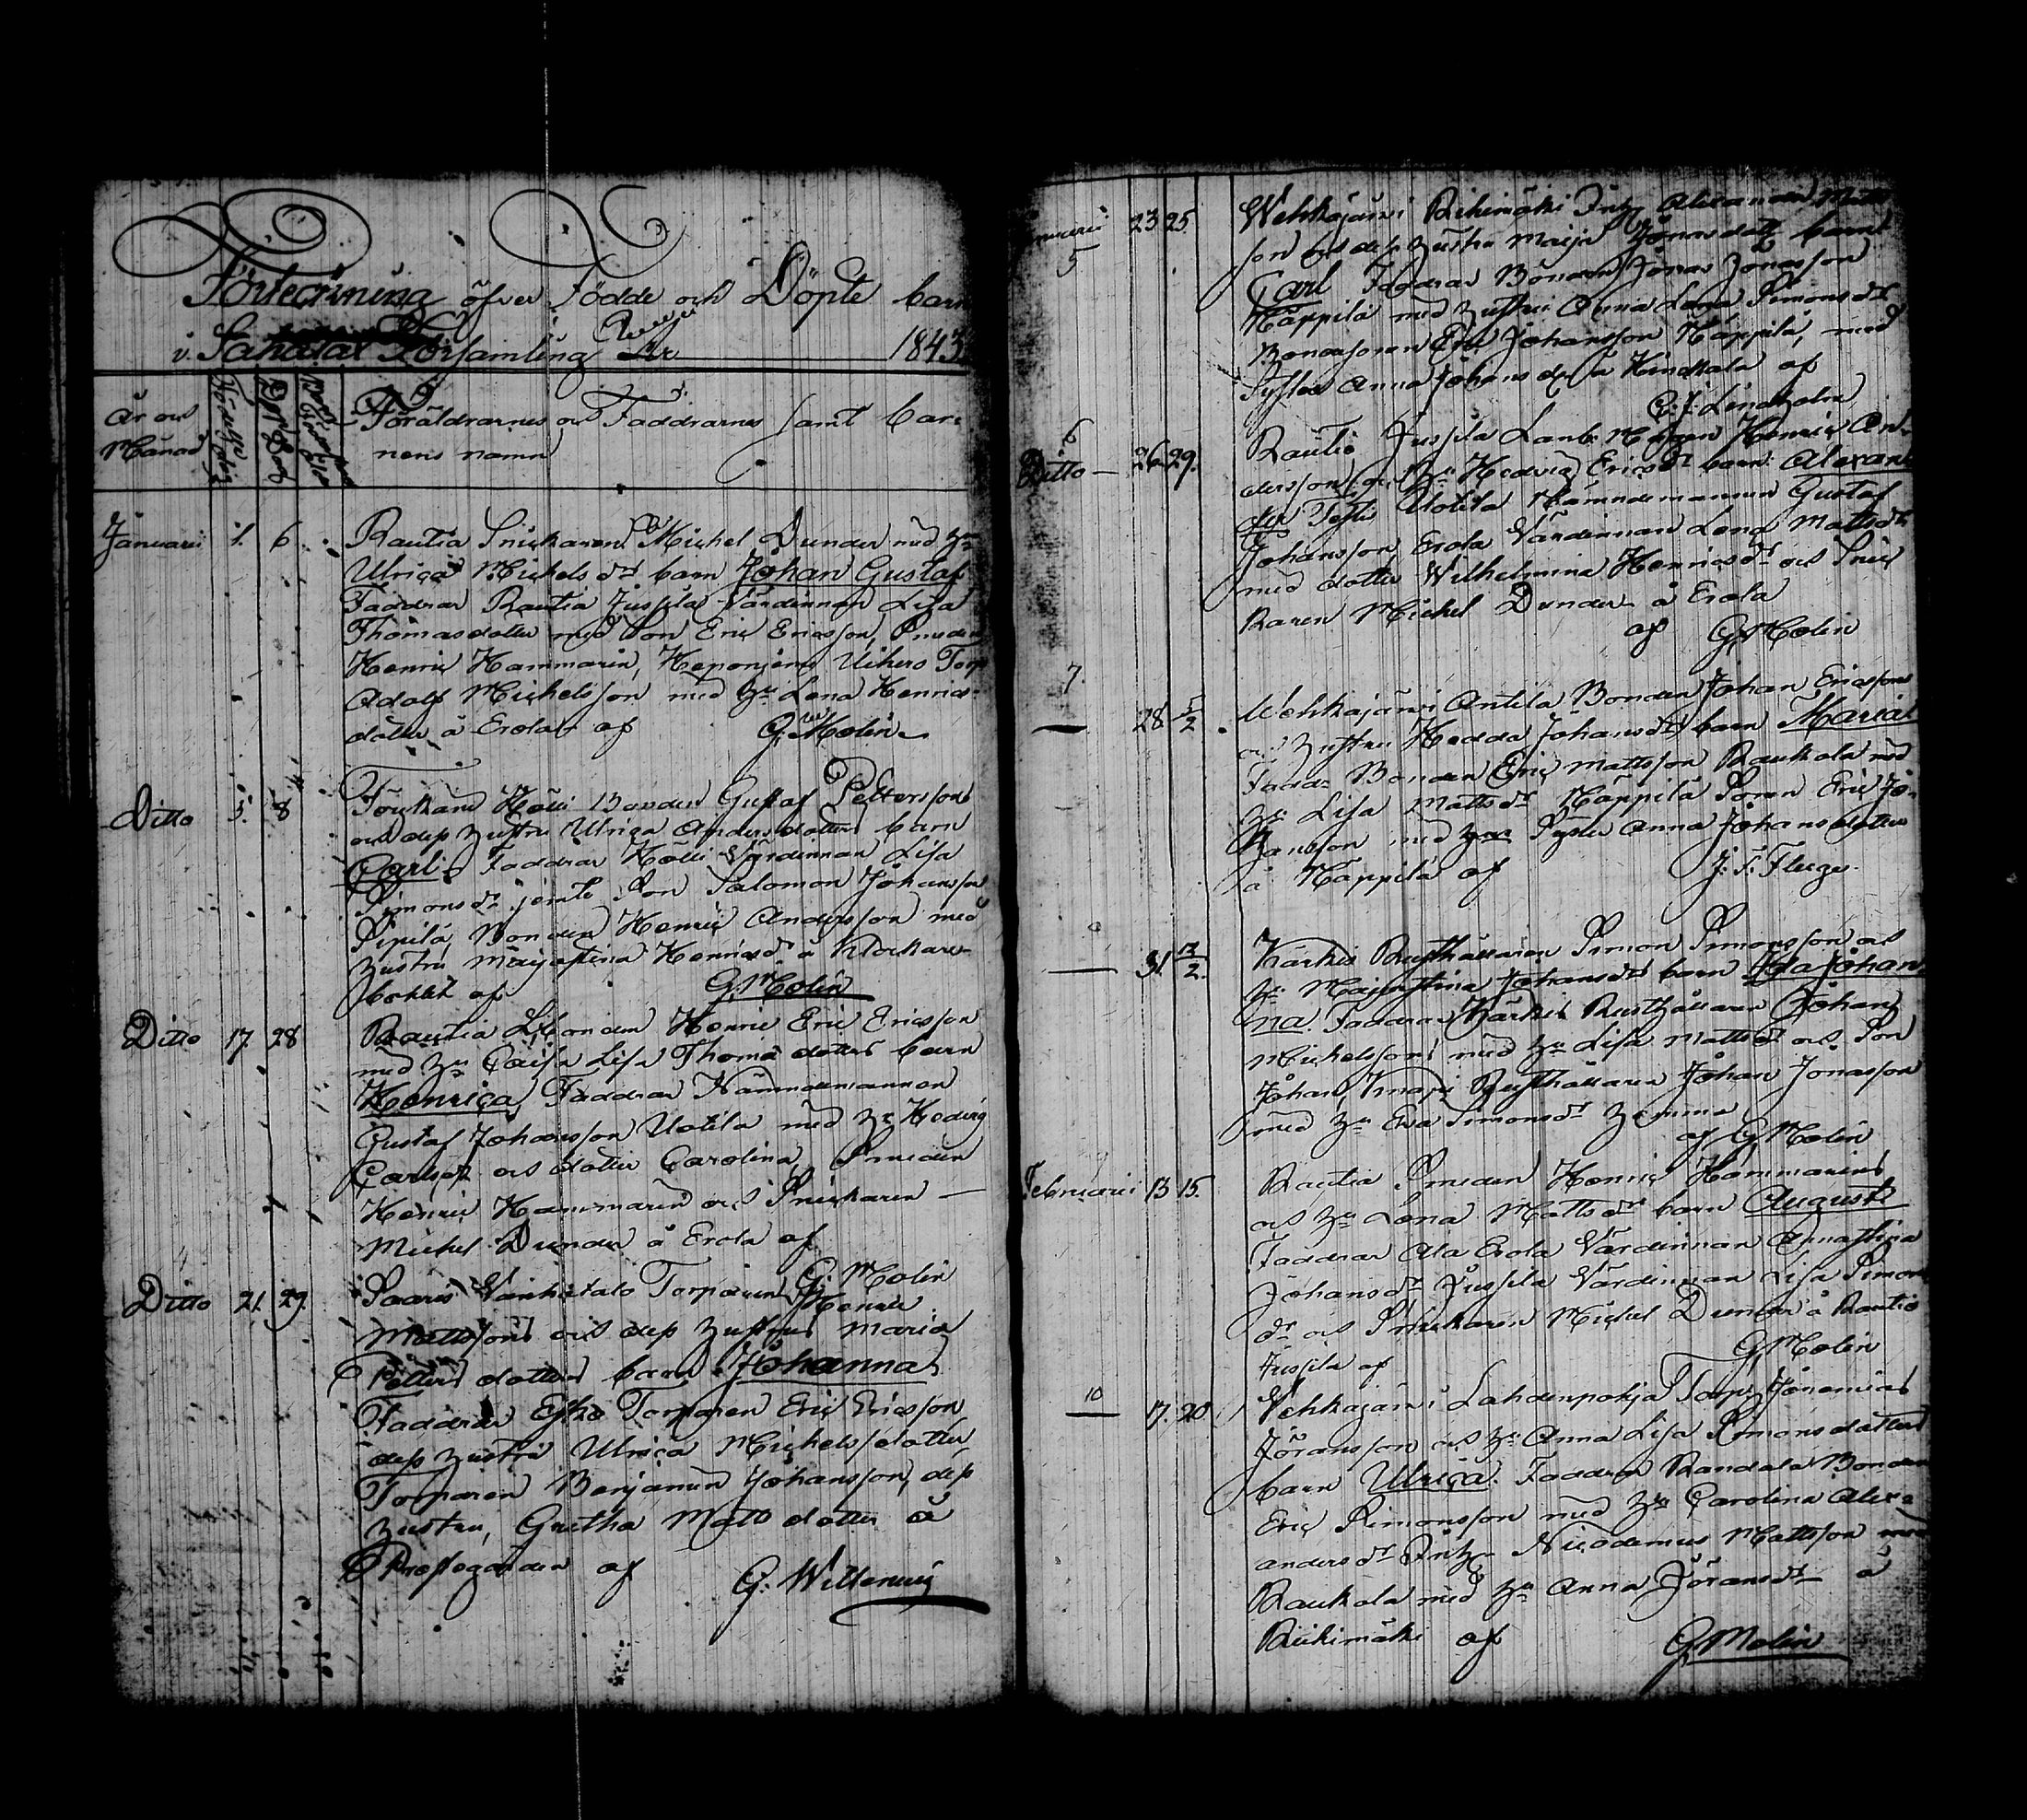 Förteckning öfver Födde och Döpte barn
i Sahalax Församling År 1843
År och
Månad
Föräldrarnes och Faddrarnes samt bar-
nens namn
Januarii 1. 6. Rautia Snickaren Michel Dunder med hu
Ulrica Michels dr barn Johan Gustaf
Faddrar Rautia Jussila Värdinnan Lisa
Thomasdotter med Son Eric Ericsson, Smeden
Henric Hammarin, Torp
Adolf Michelsson med hu Lena Henrics-
dotter å Erola af G. Molin
Ditto 5. 8 Bonden Gustaf Pettersson
och dess hustru Ulrica Andersdotters barn
Carl Faddrar Kölli Värdinnan Lisa
Simons dr jemte Son Salomon Johansson
Sipilä, Bonden Henric Andersson med
hustru Majastina Henricsdr å Klockare-
bohlet af G. Molin
Ditto 17. 28 Rautia Henric Eric Ericsson
med hu Caisa Lisa Thomædotters barn
Henrica, Faddrar Nämndemannen
Gustaf Johansson Uotila med hu Hedvig
Carlsdr och dotter Carolina, Smeden
Henric Hammarin och Snickaren —
Michel Dunder å Erola af
G. Molin
Ditto 21. 29. Saaris Vanhatalo Torparen Henric
Mattssons och dess hustrus Maria
Petters dotters barn Johanna
Faddrar Torparen Eric Ericsson
dess hustru Ulrica Michelsdotter,
Torparen Benjamin Johansson, dess
hustru, Gretha Mats dotter å
Prestegården af G. Willenius
5
23 25. Wehkajärvi Riihimäki Inhy. Alexander Matts
son och dess hustru Maija Jöransdotts barn
Carl Faddrar Bonden Jöran Jöransson
Käppilä med hustru Anna Lena Simonsdr
Bondesonen Eric Johansson Käppilä, med
Syster Anna Johansdr å af
G. J. Lindholm
6
Ditto — 26. 29. Rautio Jussila Landb. Henric An-
dersson och hu Hedvig Ericsdr barn Alexan-
der Uotila Nämndemannen Gustaf
Johansson Erola Värdinnan Lena Mattsdr
med dotter Wilhelmina Henricsdr och Snic
karen Michel Dunder å Erola
af G. Molin
7.
— 28 5/2. Wehkajärvi Antila Bonden Johan Ericsson
och hustru Hedda Johansdr barn Maria
Fadd. Bonden Eric Mattsson Raukola med
hu Lisa Mattsdr Käppilä Sonen Eric Jo-
hansson med Syster Anna Johansdotter
å Käppilä af J. F. Fluge.
— 31. 12/2. Kärkis Rusthållaren Simon Simonsson och
hu Majastina Johansdrs barn Eva Johan
na. Faddrar Kärkis Rusthållaren Johan
Michelsson med hu Lisa Mattsdr och Son
Johan, Rusthållaren Johan Jonasson
med hu Eva Simonsdr hemma
af G. Molin
Februarii 13 15. Rautia Smeden Henric Hammarins
och hu Lena Mattsdrs barn August
Faddrar Ala Erola Värdinnan Annastina
Johansdr Jussila Värdinnan Lisa Simons
dr och Snickaren Michel Dunder å Rautio
Jussila af G. Molin
10
— 17. 20 Vehkajärvi Lahdenpohja Torp. Jeremias
Jöransson och hu Anna Lisa Simonsdotters
barn Ulrica. Faddrar Bonden
Eric Simonsson med hu Carolina Alex-
anders dr Inhy. Nicodemus Mattsson
Raukola med hu Anna Jöransdr å
Riihimäki af G. Molin